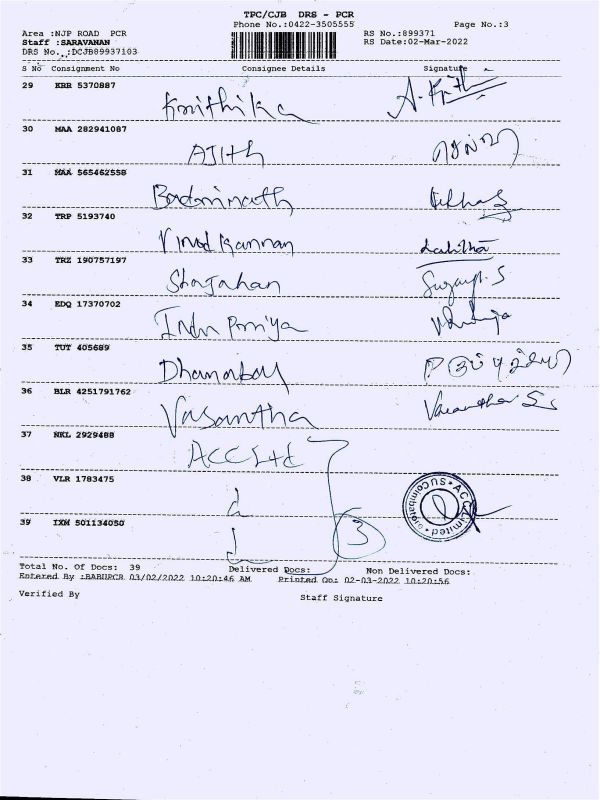 TPC/CJB DRS - PCR
Phone No.:0422-3505555 Page No.:3
Area :NJP ROAD PCR RS No.:899371
Staff :SARAVANAN RS Date:02-Mar-2022
DRS No..:DCJB89937103
S No Consignment No Consignee Details Signature
29 KRR 5370887 Krithika A. Krith
30 MAA 282941087 AJIth
31 MAA 565462558 Badrinath
32 TRP 5193740 Vinod Kannan Lalitha
33 TRZ 190757197 Shajahan S
34 EDQ 17370702 Indu Priya
35 TUT 405689 Dhanabal
36 BLR 4251791762 Vasantha Vasantha S
37 NKL 2929488 ACC Ltd
38 VLR 1783475
39 IXM 501134050 3
Total No. Of Docs: 39 Delivered Docs: Non Delivered Docs:
Entered By :BABUPCR 03/02/2022 10:20:46 AM Printed On: 02-03-2022 10:20:56
Verified By Staff Signature